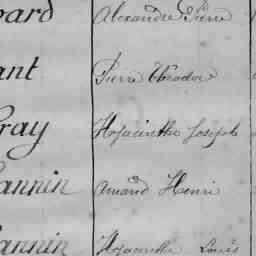 ard Alexandre Pierre
ant Pierre Théodore
ray Hyacinthe Joseph
annin Amand Henri
annin Hyacinthe Louis